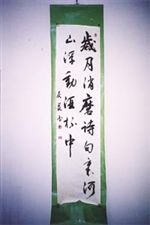 歲月消磨詩句裏河
山浮動酒杯中